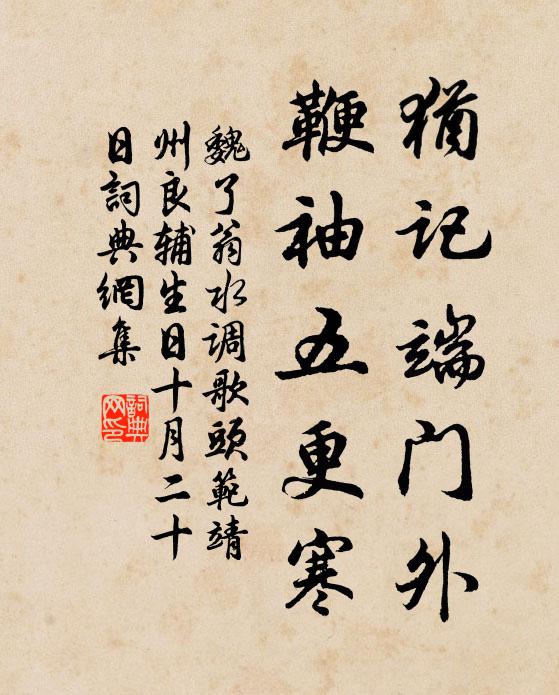 猶记端门外
鞭袖五更寒
魏了翁水调歌頭範靖
州良辅生日十月二十
日詞典網集
詞典
网印